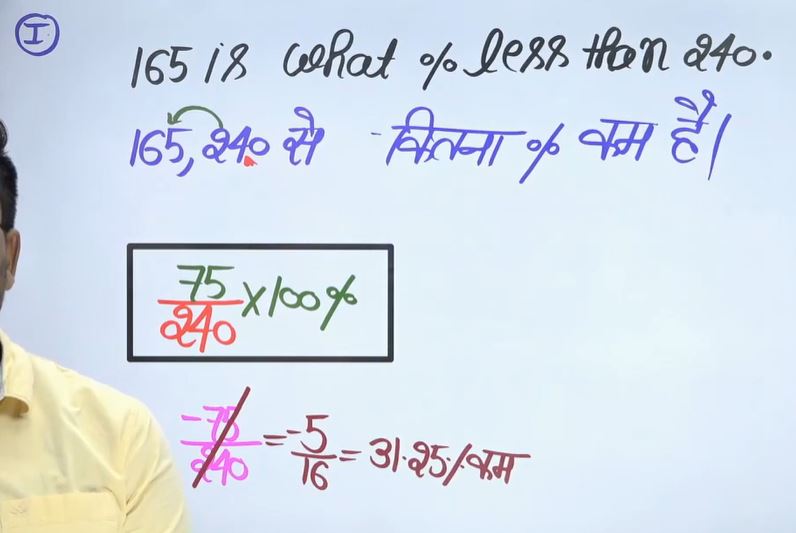 I
165 is what % less than 240.
165, 240 से कितना % कम है।
75/240 × 100%
-75/240 = -5/16 = 31.25% कम